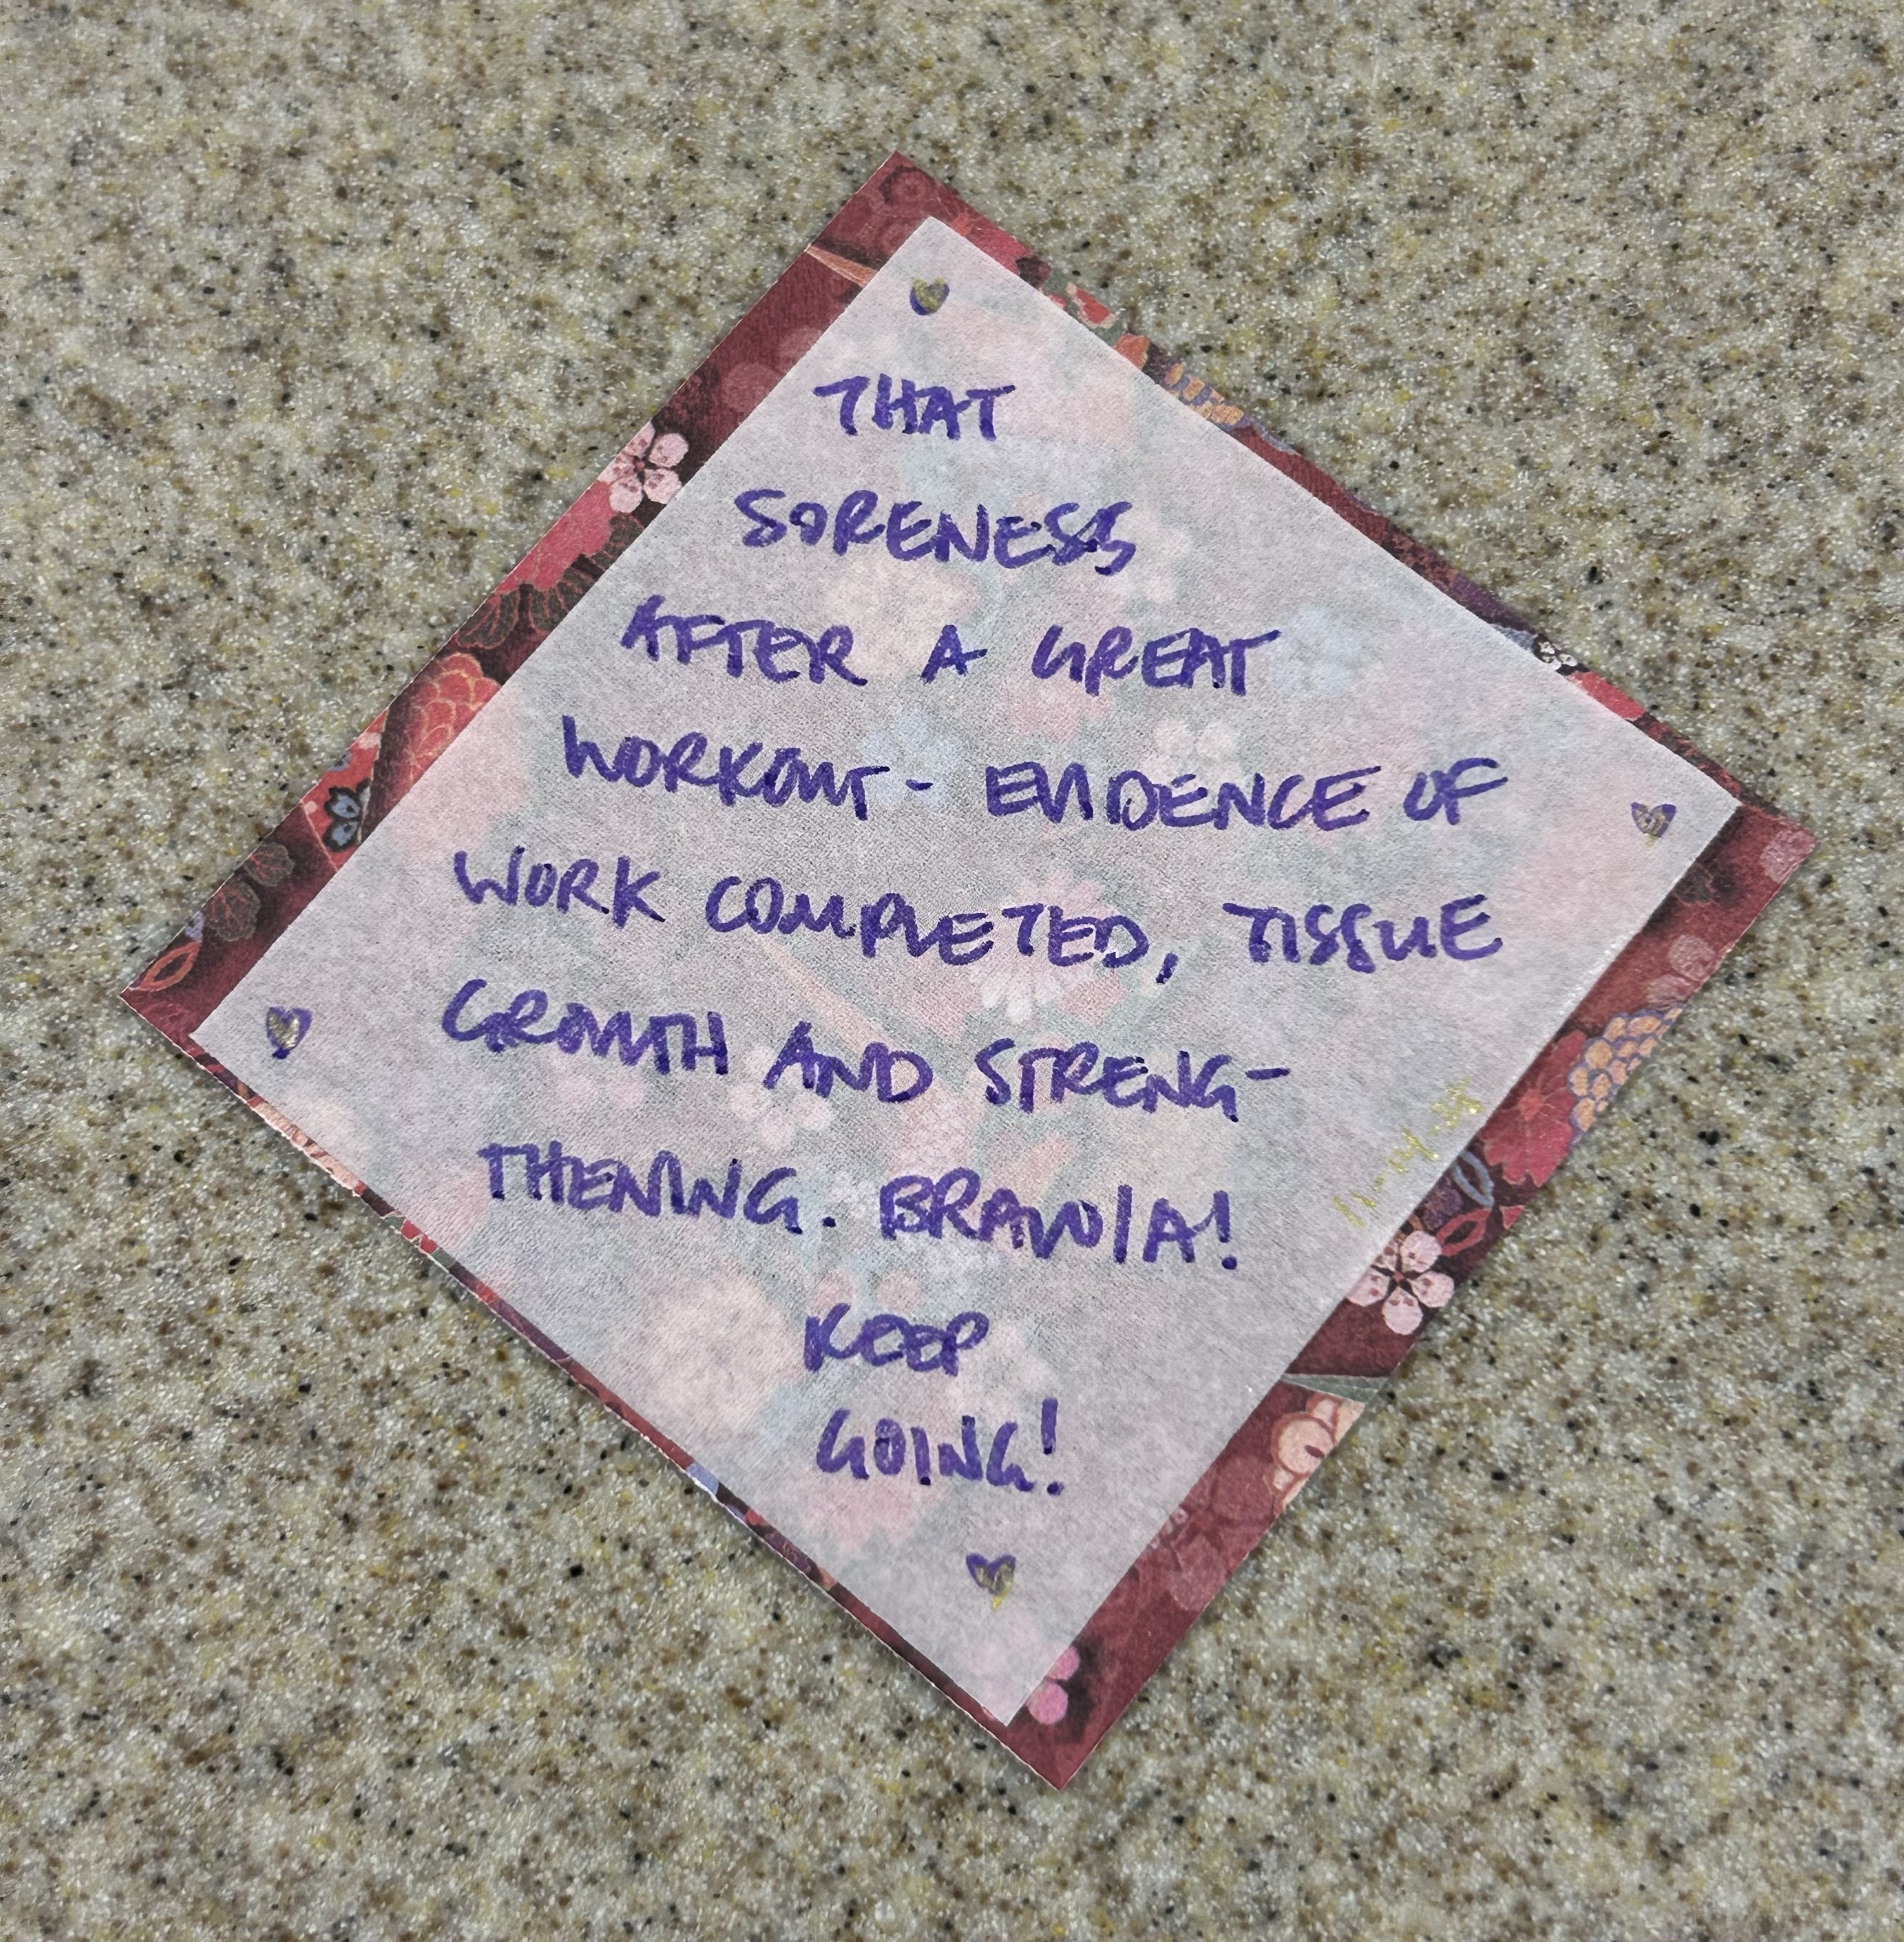 THAT
SORENESS
AFTER A GREAT
WORKOUT - EVIDENCE OF
WORK COMPLETED, TISSUE
GROWTH AND STRENG-
THENING. BRAVO/A!
KEEP
GOING!